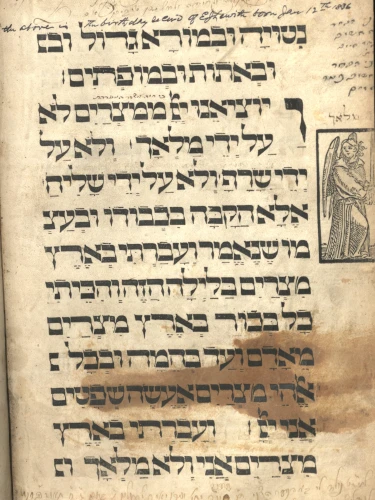 the above is the birthday born Jan 12th
נטוייה ובמורא גדול ובא
ובאותות ובמופתים:
ויוציאנו יי ממצרים לא
על ידי מלאך ולא על
ידי שרף ולא על ידי שליח
אלא הקבה בכבודו ובעצ
מו שנאמר ועברתי בארץ
מצרים בלילה הזה והכיתי
כל בכור בארץ מצרים
מאדם ועד בהמה ובכל
אלהי מצרים אעשה שפטים
אני יי ועברתי בארץ
מצרים אני ולא מלאך
מלאך